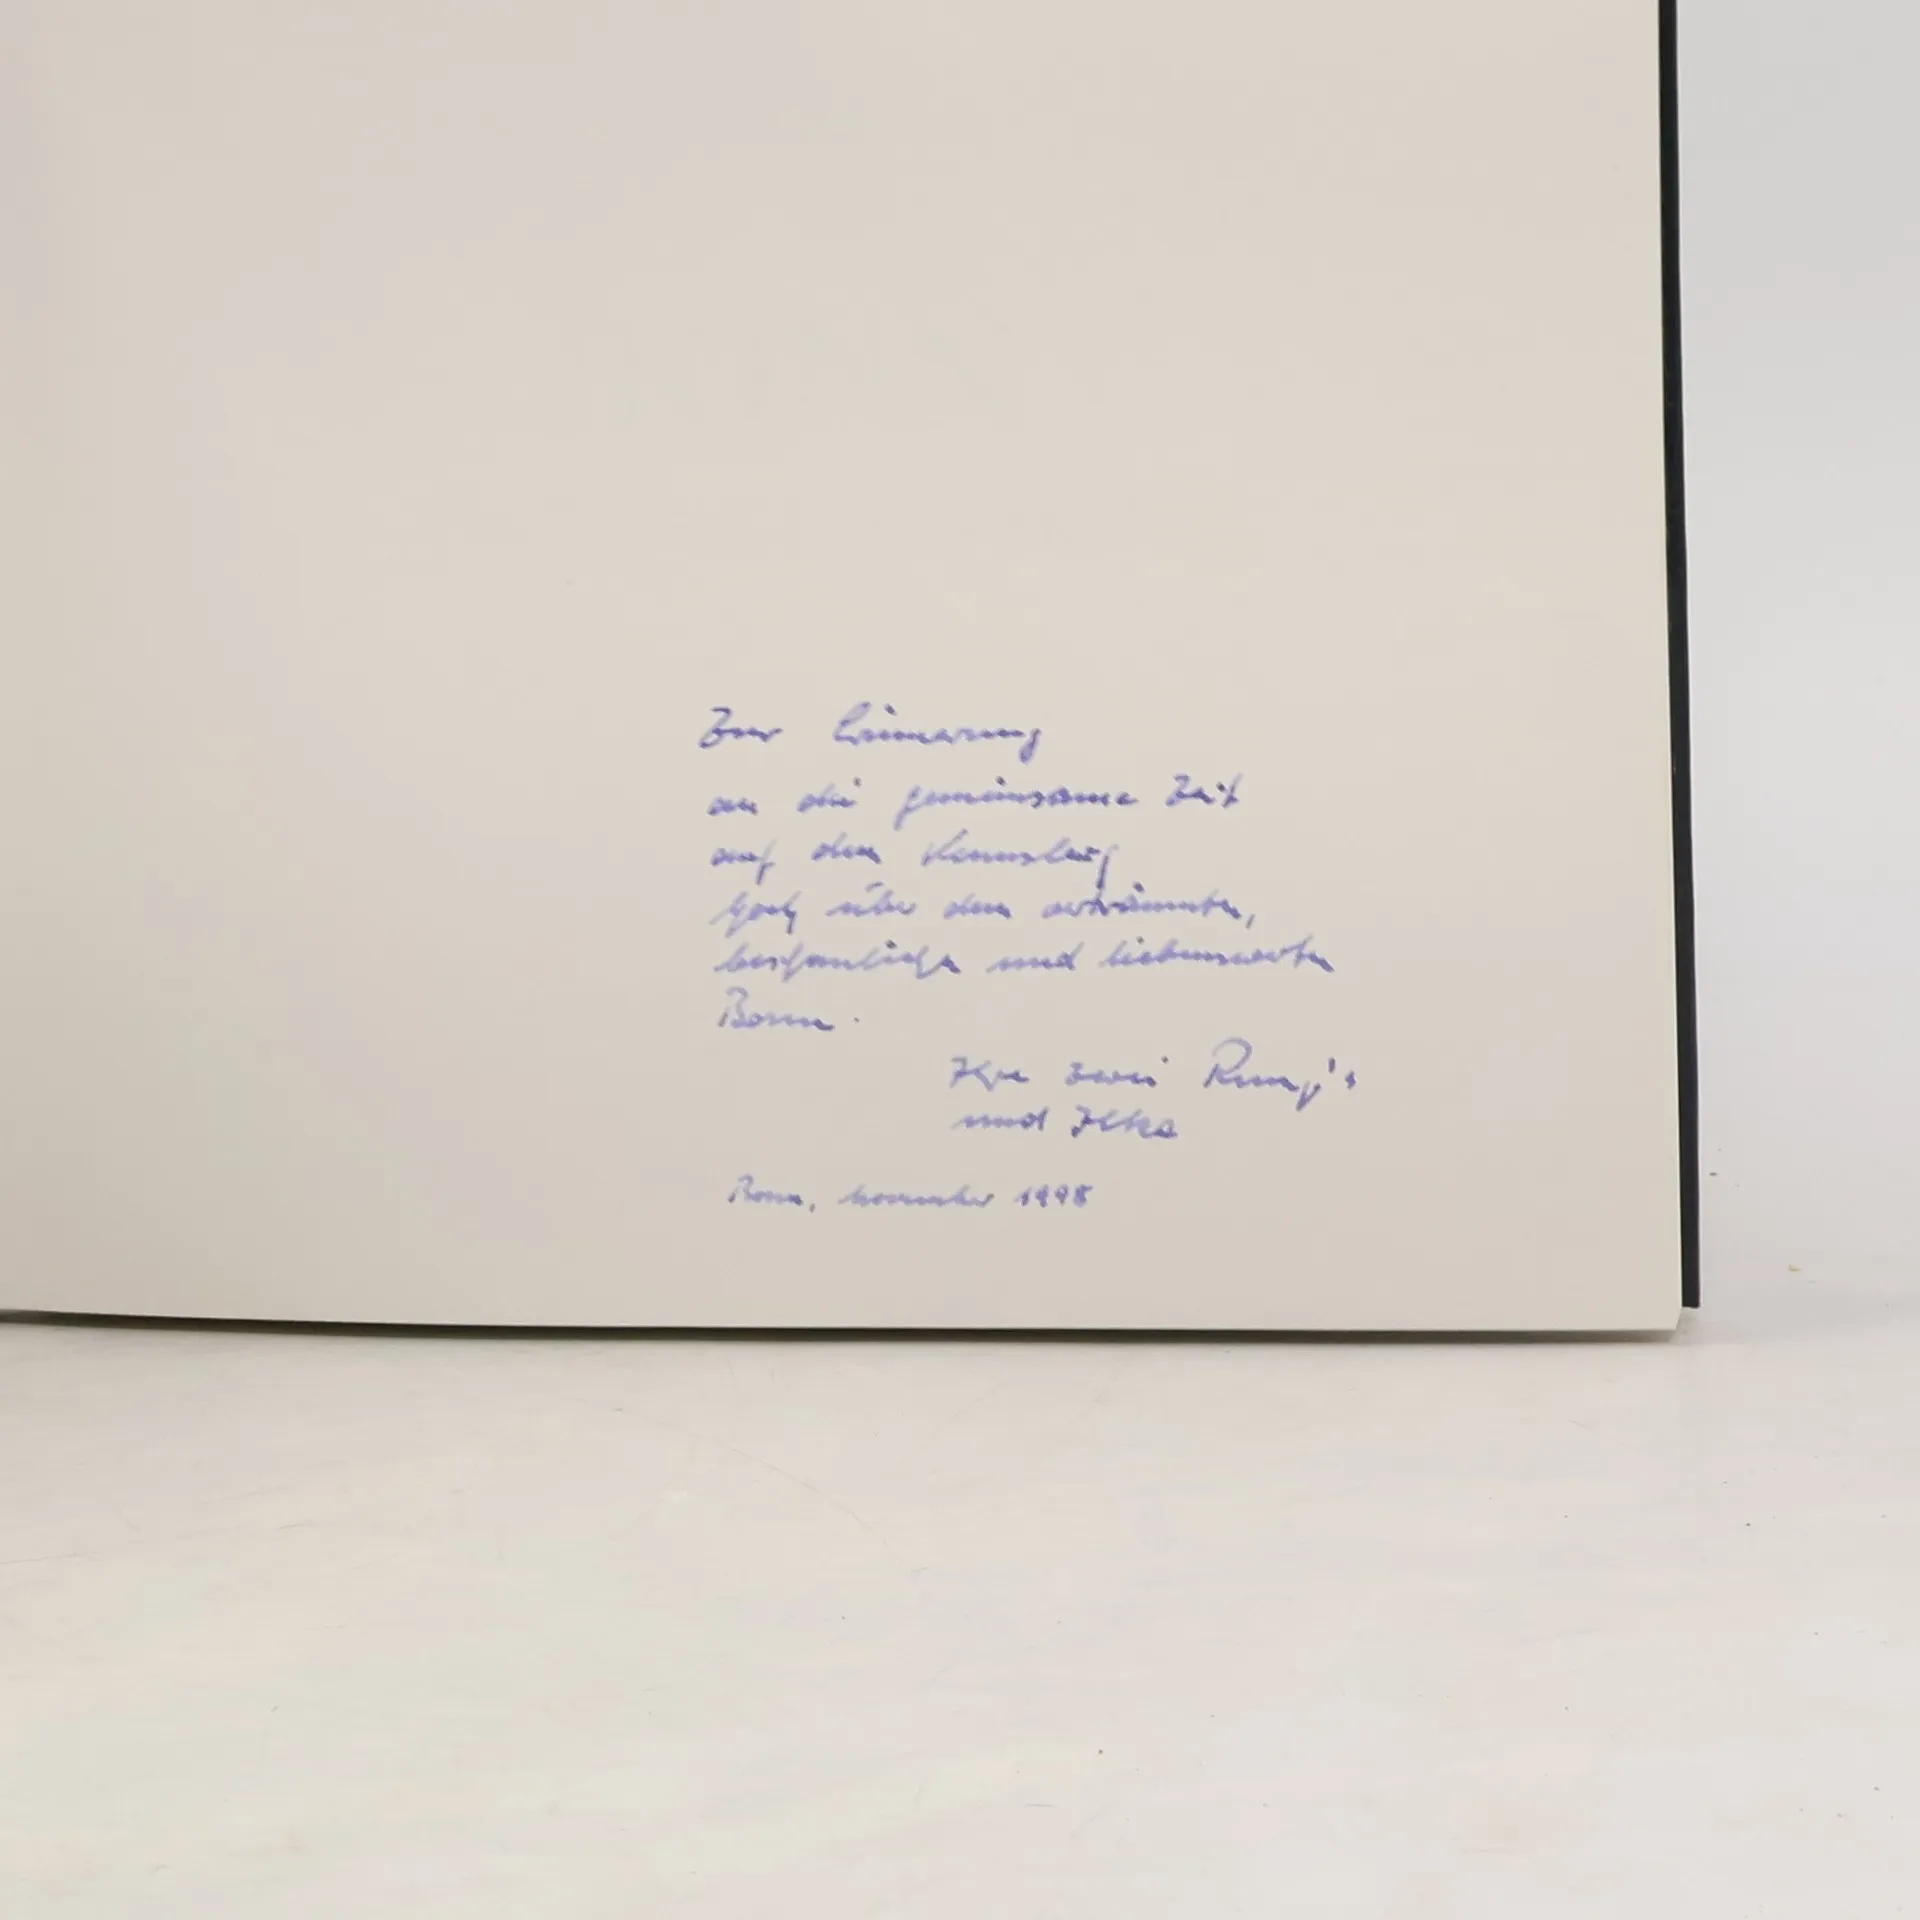 Zur Erinnerung
an die gemeinsame Zeit
auf dem Venusberg
hoch über dem verträumten,
beschaulichen und liebenswerten
Bonn.
Ihre zwei Rump's
und Ilka
Bonn, November 1998